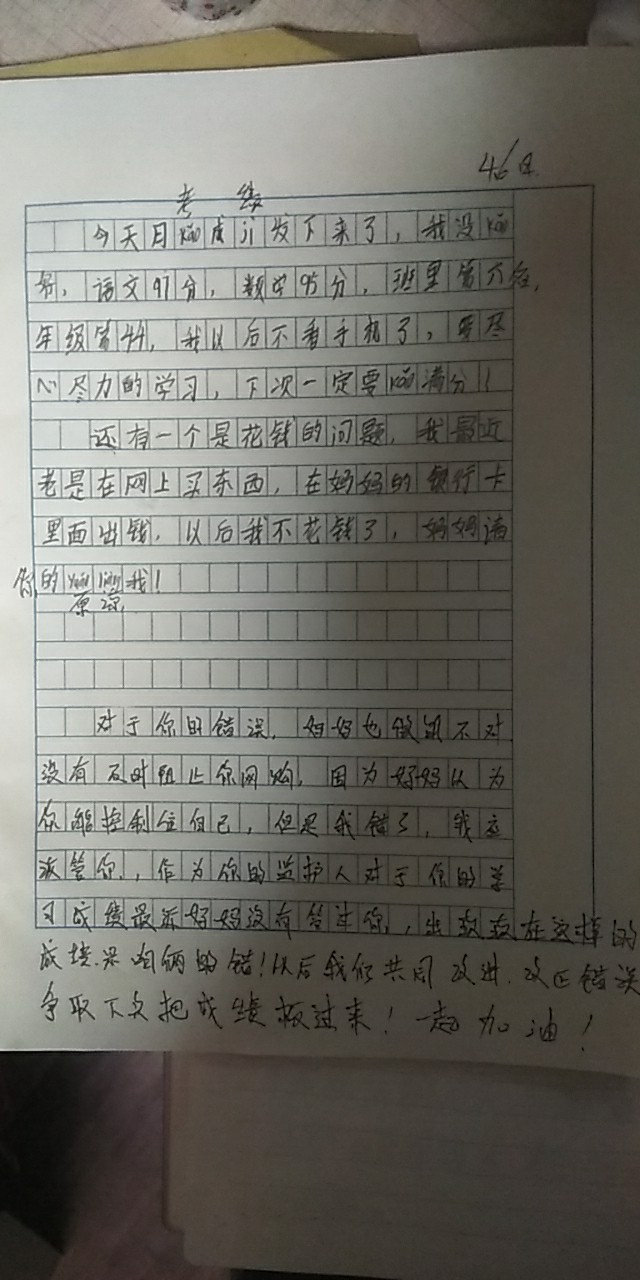 46日
考 绩
今天日kǎo成jì发下来了，我没kǎo
好，语文97分，数学95分，班里第六名，
年级第44，我以后不看手机了，要尽
心尽力的学习，下次一定要kǎo满分！
还有一个是花钱的问题，我最近
老是在网上买东西，在妈妈的银行卡
里面出钱，以后我不花钱了，妈妈请
你的yuán liàng我！
原 谅
对于你的错误，妈妈也做的不对
没有及时阻止你网购，因为妈妈认为
你能控制住自己，但是我错了，我应
该管你，作为你的监护人对于你的学
习成绩最近妈妈没有管过你，出现现在这样的
成绩是咱俩的错！以后我们共同改进，改正错误
争取下次把成绩扳过来！一起加油！